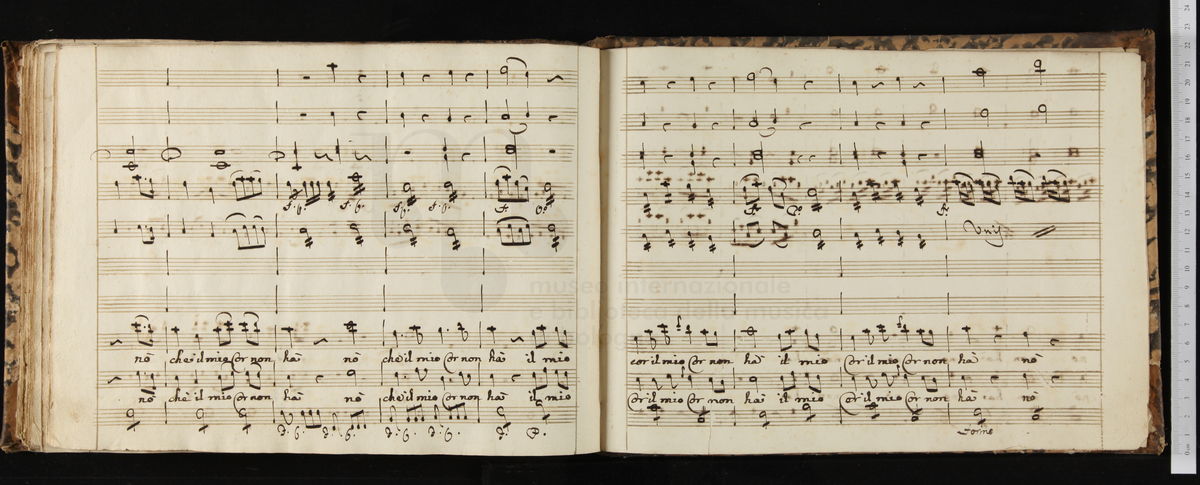 f.º p.º f.º p.º f.º p.º f.º p.º f.º p.º
nò che il mio Cor non hà nò che il mio Cor non hà il mio
nò che il mio Cor non hà nò che il mio Cor non hà il mio
museo internazionale
e biblioteca della musica
Unis
cor il mio Cor non hà il mio Cor il mio Cor non hà nò
Cor il mio Cor non hà il mio Cor il mio Cor non hà nò